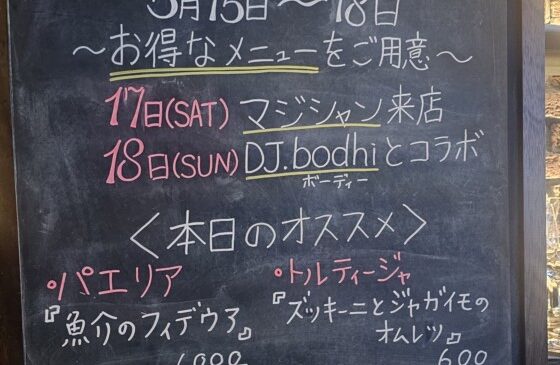 5月15日〜18日
〜お得なメニューをご用意〜
17日(SAT) マジシャン来店
18日(SUN) DJ.bodhiとコラボ
ボーディー
〈本日のオススメ〉
・パエリア
『魚介のフィデウア』
・トルティージャ
『ズッキーニとジャガイモの
オムレツ』
600